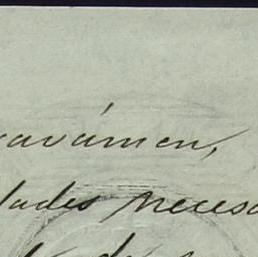 ravámen,
dades necesa